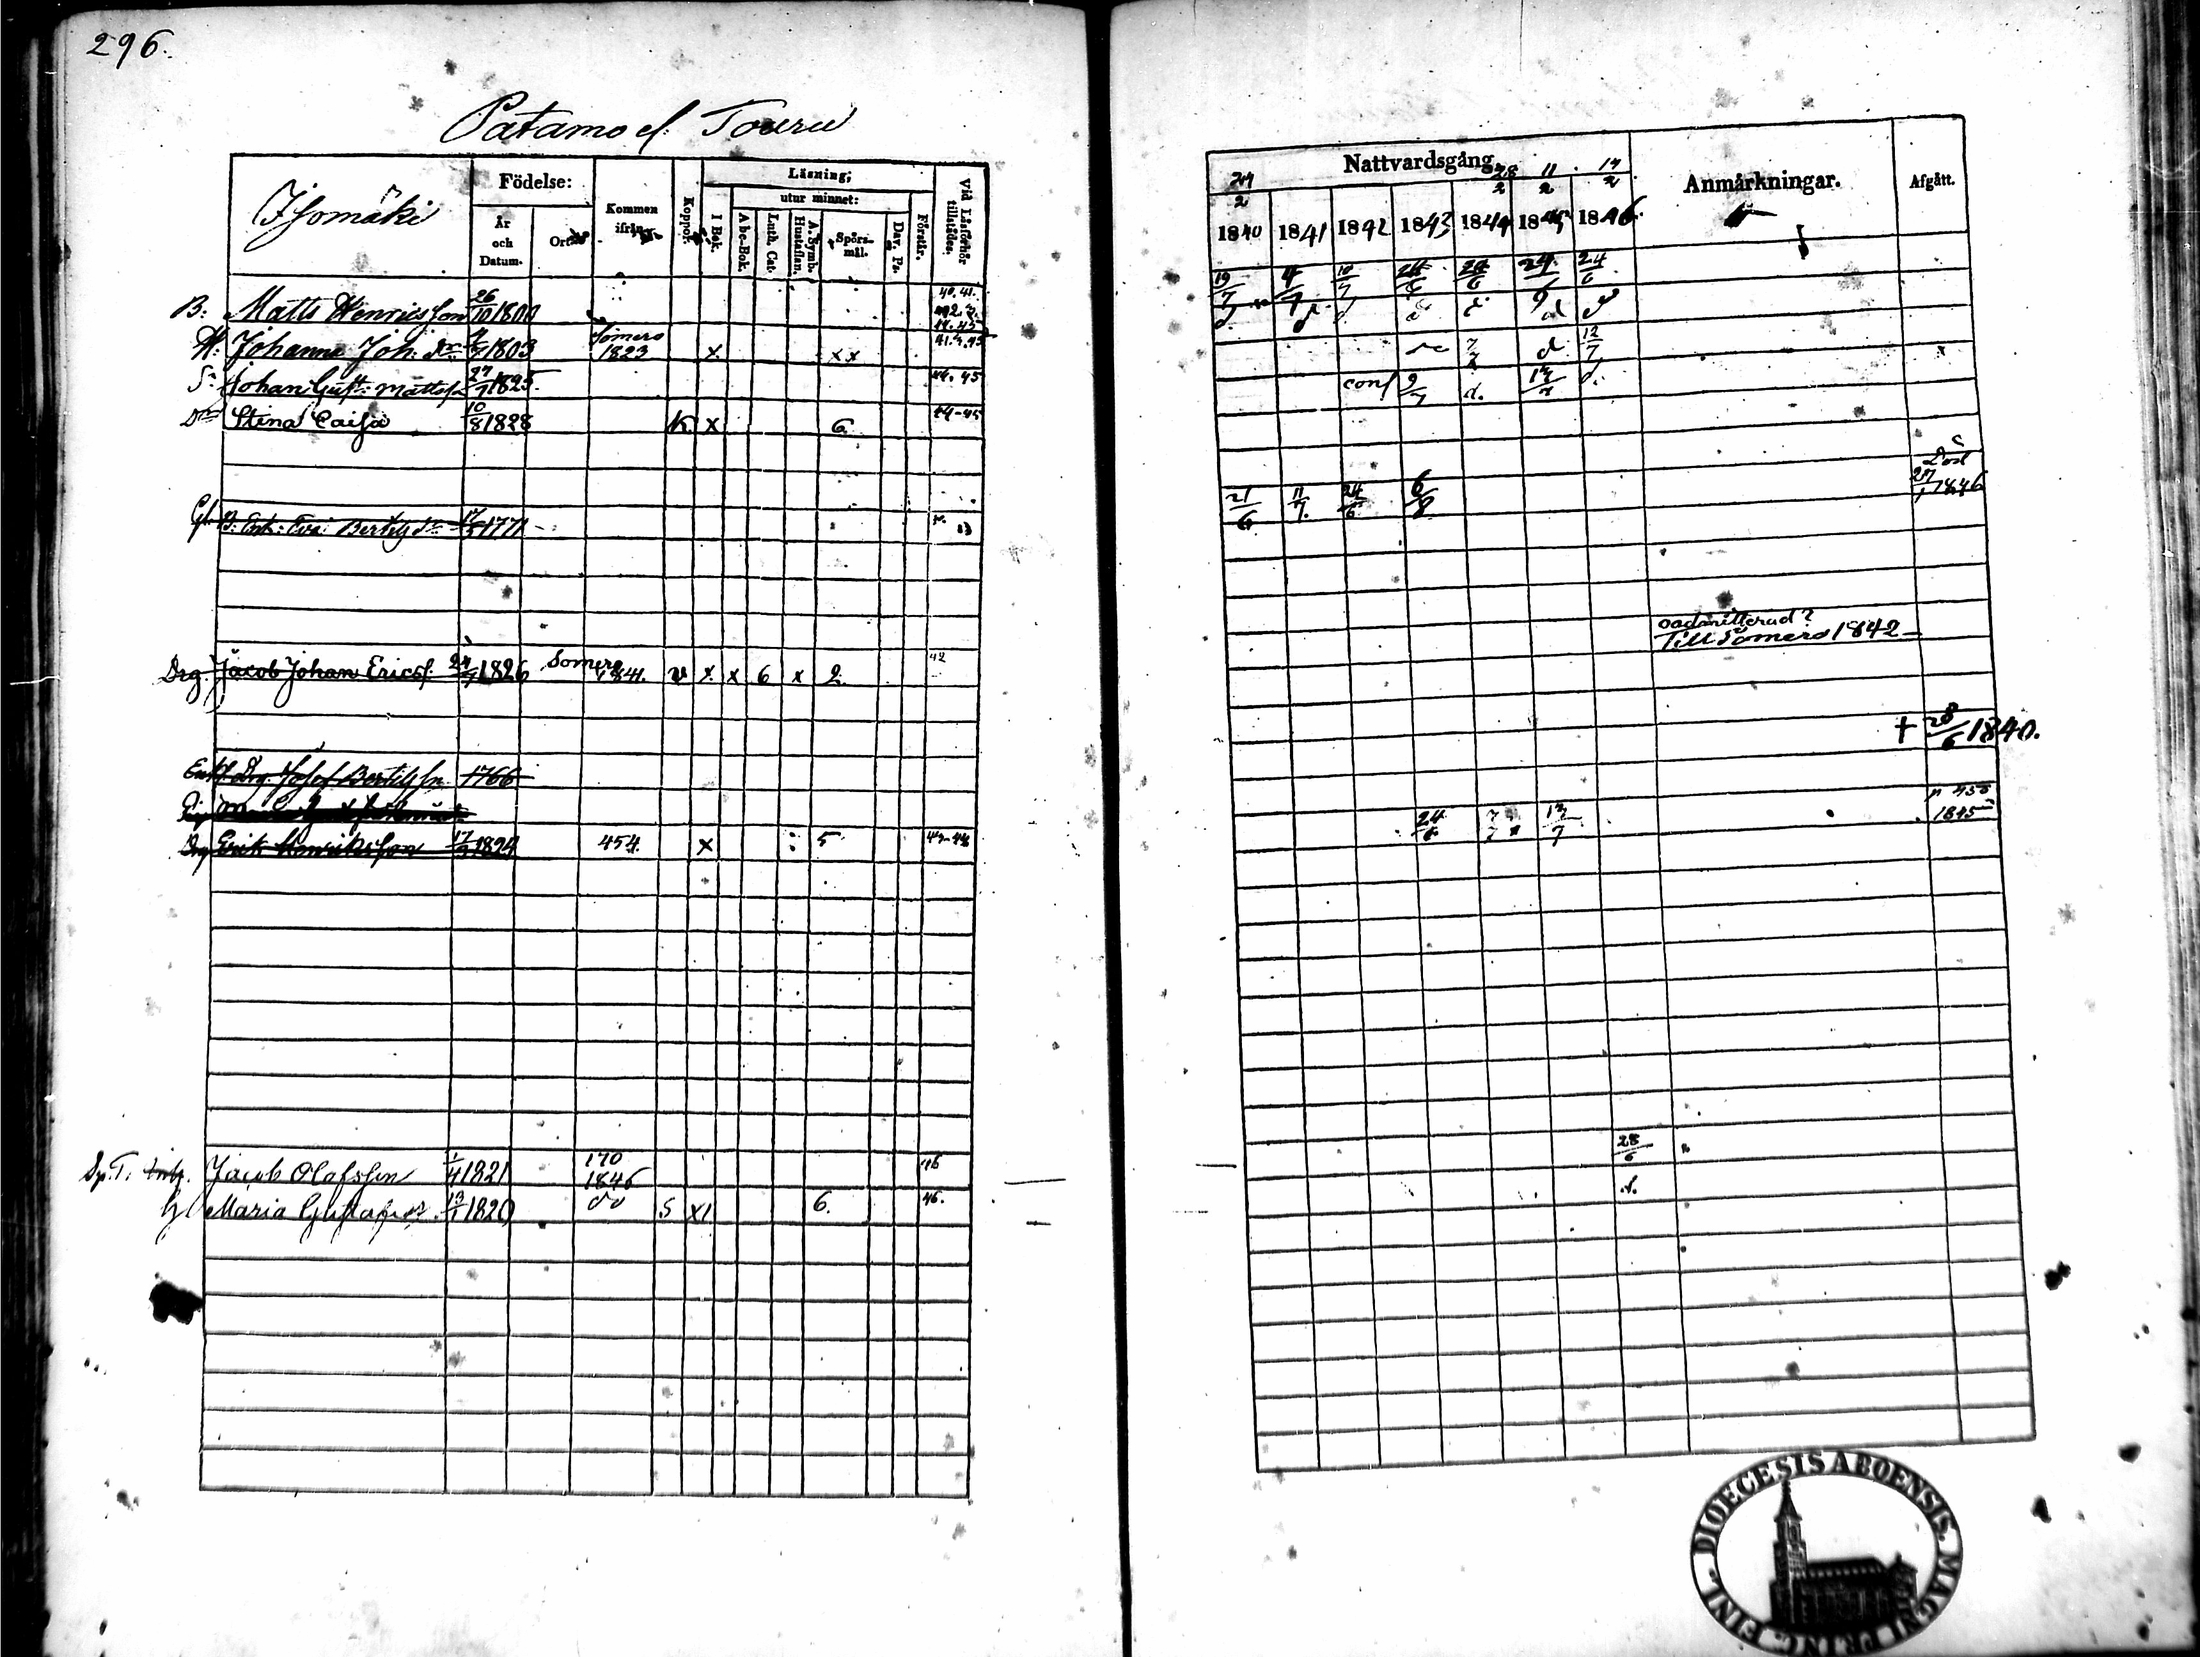 296.
Patamo el. Touru
Isomäki
Födelse:
År och Datum.
Ort
Kommen ifrån
Koppor.
Läsning,
I Bok.
utur minnet:
Abc-Bok.
Luth. Cat.
A. Symb. Hustaflan.
Spörsmål.
Dav. Ps.
Förstår.
Vid Läsförhör tillstädes.
B: Matts Henricsson 26/10 1800 40. 41.
H: Johanna Joh: dr 1803 Somero 1823 x xx
Sn Johan Gust: Mattss 27/7 1825 44. 45
Dr Stina Caisa 10/8 1828 K x 6 44-45
B: Enk: Eva Bertilsdr 1771
Drg. Jacob Johan Ericss: 24/7 1826 Somero 1841. v x x 6 x 2. 42
Enkl Drg. Josef Bertilssn 1766
Drg Erik Henriksson 17/ 1824 454. x 5
Sp. T. Jacob Olofssen 1/4 1821 170 1846 46
H Maria Gustafsdr 13/1 1820 do S x1 6. 46.
Nattvardsgång
24/2 28/2 11/2 14/2
1840 1841 1842 1843 1844 1845 1846.
Anmärkningar.
Afgått.
19/7 4/7 10/7 24/6 24/6 24/6 24/6
d d d d d d d
7/7 d 12/7
conf 9/7 d. 13/7 d.
21/6 11/7 24/6 6/8 Död 27/1 1846
oadmitterad?
Till Somero 1842
† 28/6 1840.
24/6 7/7 13/7 p 455 1845
28/6
d.
DIOECESIS ABOENSIS. MAGNI PRINC. FINL.